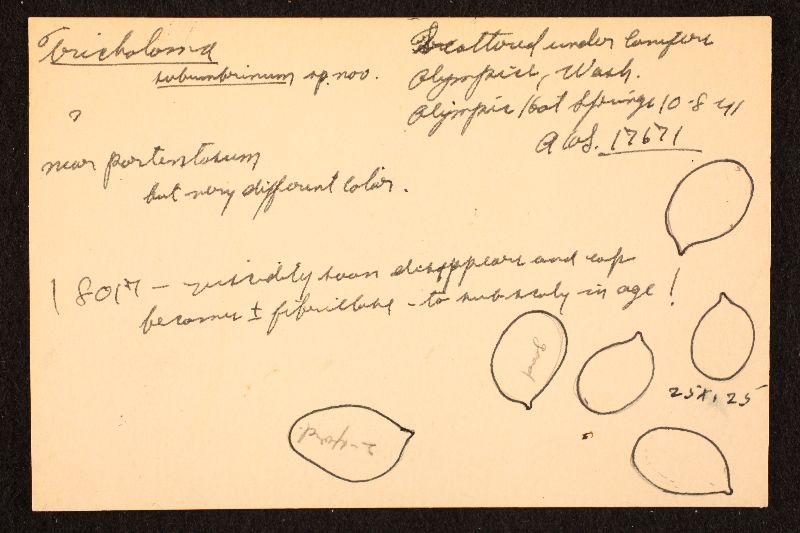 Tricholoma
subumbrinum sp. nov.
?
near portentosum
but very different color.
Scattered under conifers
Olympics, Wash.
Olympic Hot Springs 10-8-41
AHS. 17671
18017 - viscidity soon disappears and cap
becomes ± fibrillose - to subscaly in age!
good
25 x . 25
2-spored